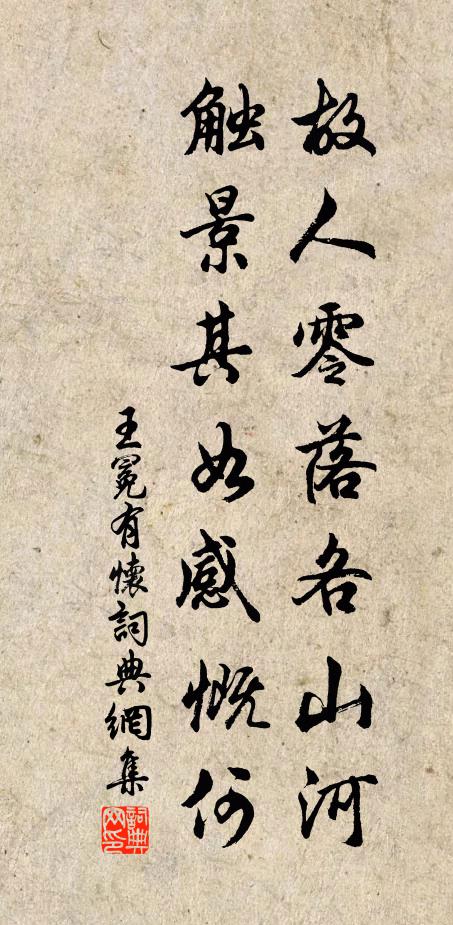 故人零落各山河
触景其如感慨何
王冕有懷詞典網集
詞典網印